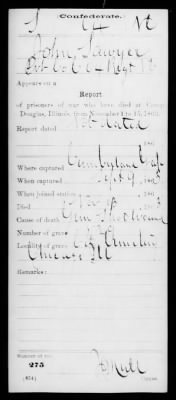 Confederate.
64 N C
John Sawyer
Pvt Co
Appears on a
Report
of prisoners of war who have died at Camp
Douglas, Illinois, from November 1 to 15, 1863.
Report dated Not dated
, 186
Where captured Cumberland Gap
When captured Sept 9, 1863
When joined station , 186
Died Nov , 1863
Cause of death Gun Shot wound
Number of grave
Locality of grave City Cemetery
Chicago Ill
Remarks:
Number of roll:
275
(654)
Copyist.